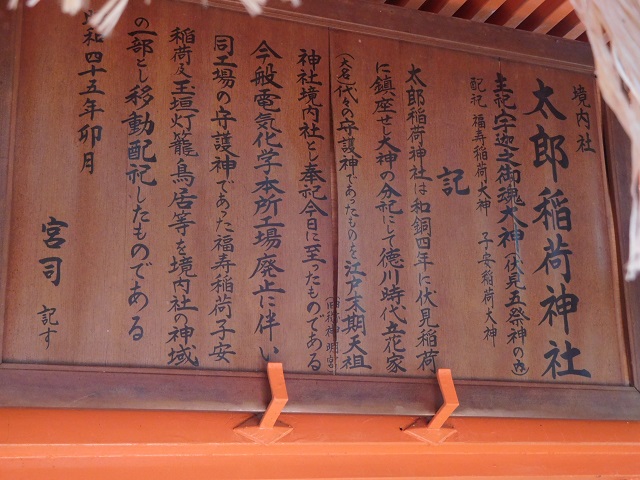 境内社
太郎稲荷神社
主祀 宇迦之御魂大神(伏見五祭神の内)
配祀 福寿稲荷大神 子安稲荷大神
記
太郎稲荷神社は和銅四年に伏見稲荷
に鎮座せし大神の分祀にして徳川時代立花家
(大名)代々の守護神であったものを江戸末期天祖
神社境内社とし奉祀今日に至ったものである
今般電気化学本所工場廃止に伴い
同工場の守護神であった福寿稲荷子安
稲荷及玉垣灯籠鳥居等を境内社の神域
の一部とし移動配祀したものである
昭和四十五年卯月
宮司 記す